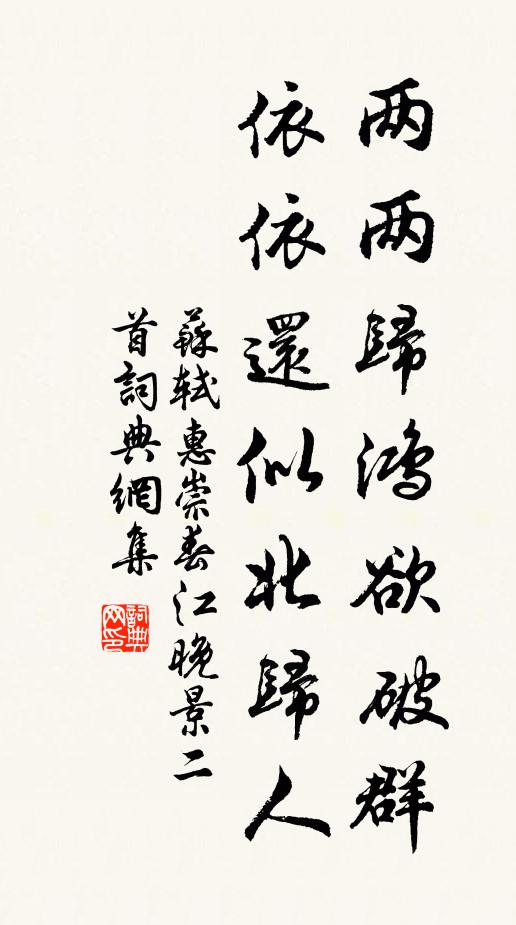 两两歸鴻欲破群
依依還似北歸人
蘇轼惠崇春江晚景二
首詞典網集
詞典
网印